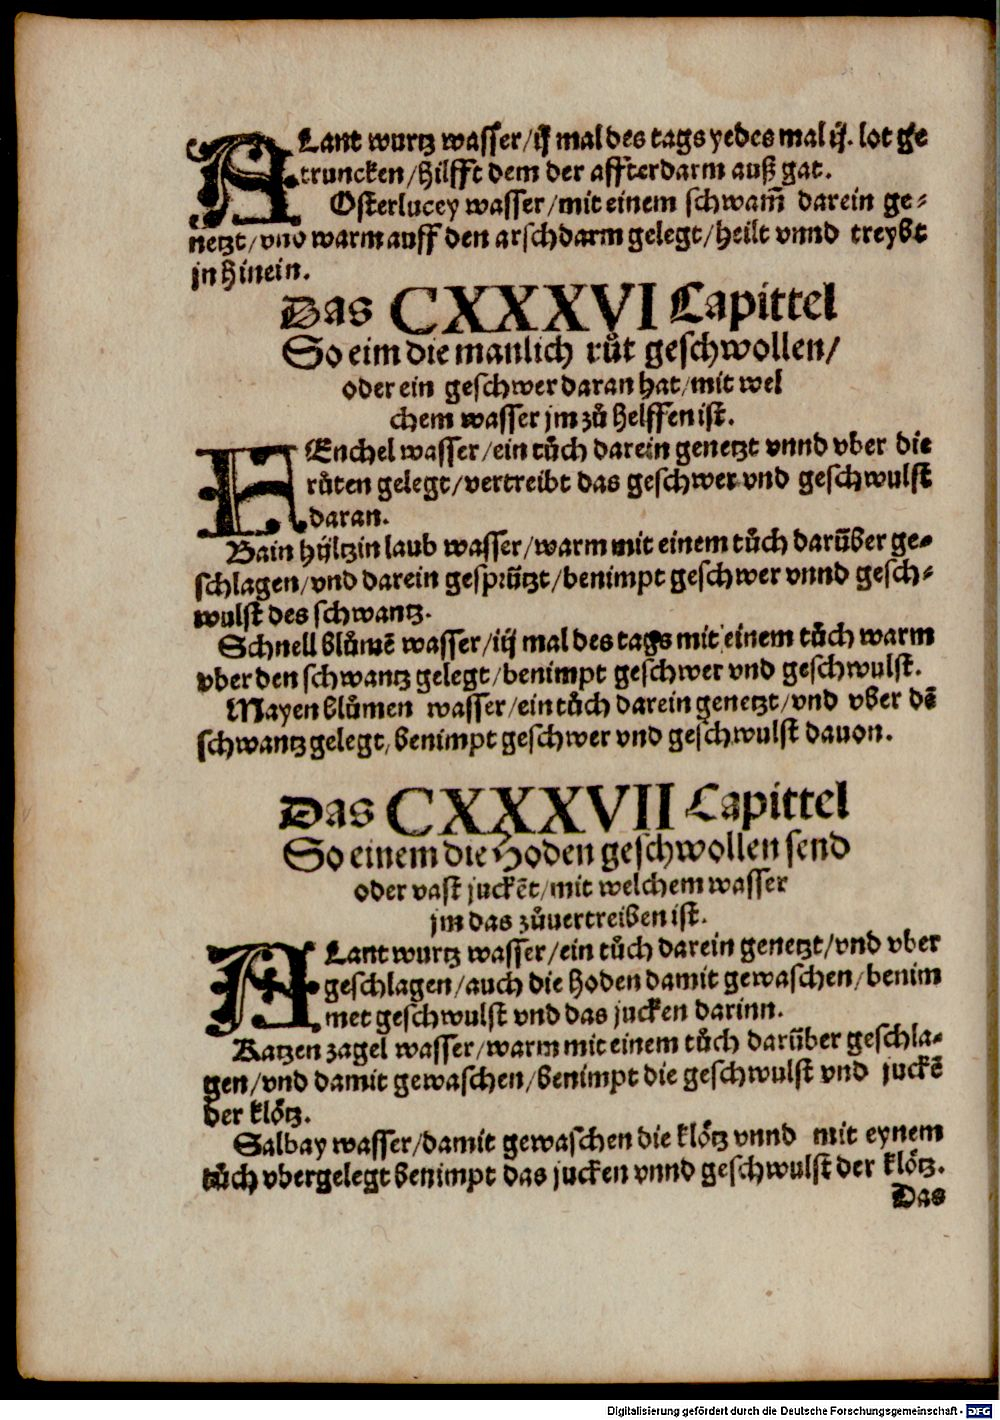 ALant wurtz wasser/ij mal des tags yedes mal ij. lot ge
truncken/hilfft dem der affterdarm auß gat.
Osterlucey wasser/mit einem schwam̃ darein ge-
netzt/vnd warm auff den arschdarm gelegt/heilt vnnd treybt
jn hinein.
Das CXXXVI Capittel
So eim die manlich růt geschwollen/
oder ein geschwer daran hat/mit wel
chem wasser jm zů helffen ist.
FEnchel wasser/ein tůch darein genetzt vnnd vber die
růten gelegt/vertreibt das geschwer vnd geschwulst
daran.
Bain hyltzin laub wasser/warm mit einem tůch darüber ge-
schlagen/vnd darein gesprützt/benimpt geschwer vnnd gesch-
wulst des schwantz.
Schnell blůmē wasser/iij mal des tags mit einem tůch warm
vber den schwantz gelegt/benimpt geschwer vnd geschwulst.
Mayen blůmen wasser/ein tůch darein genetzt/vnd vber dē
schwantz gelegt/benimpt geschwer vnd geschwulst dauon.
Das CXXXVII Capittel
So einem die Hoden geschwollen send
oder vast juckēt/mit welchem wasser
jm das zůuertreiben ist.
ALant wurtz wasser/ein tůch darein genetzt/vnd vber
geschlagen/auch die hoden damit gewaschen/benim
met geschwulst vnd das jucken darinn.
Katzen zagel wasser/warm mit einem tůch darüber geschla-
gen/vnd damit gewaschen/benimpt die geschwulst vnd juckē
der klötz.
Salbay wasser/damit gewaschen die klötz vnnd mit eynem
tůch vbergelegt benimpt das jucken vnnd geschwulst der klötz.
Das
Digitalisierung gefördert durch die Deutsche Forschungsgemeinschaft - DFG